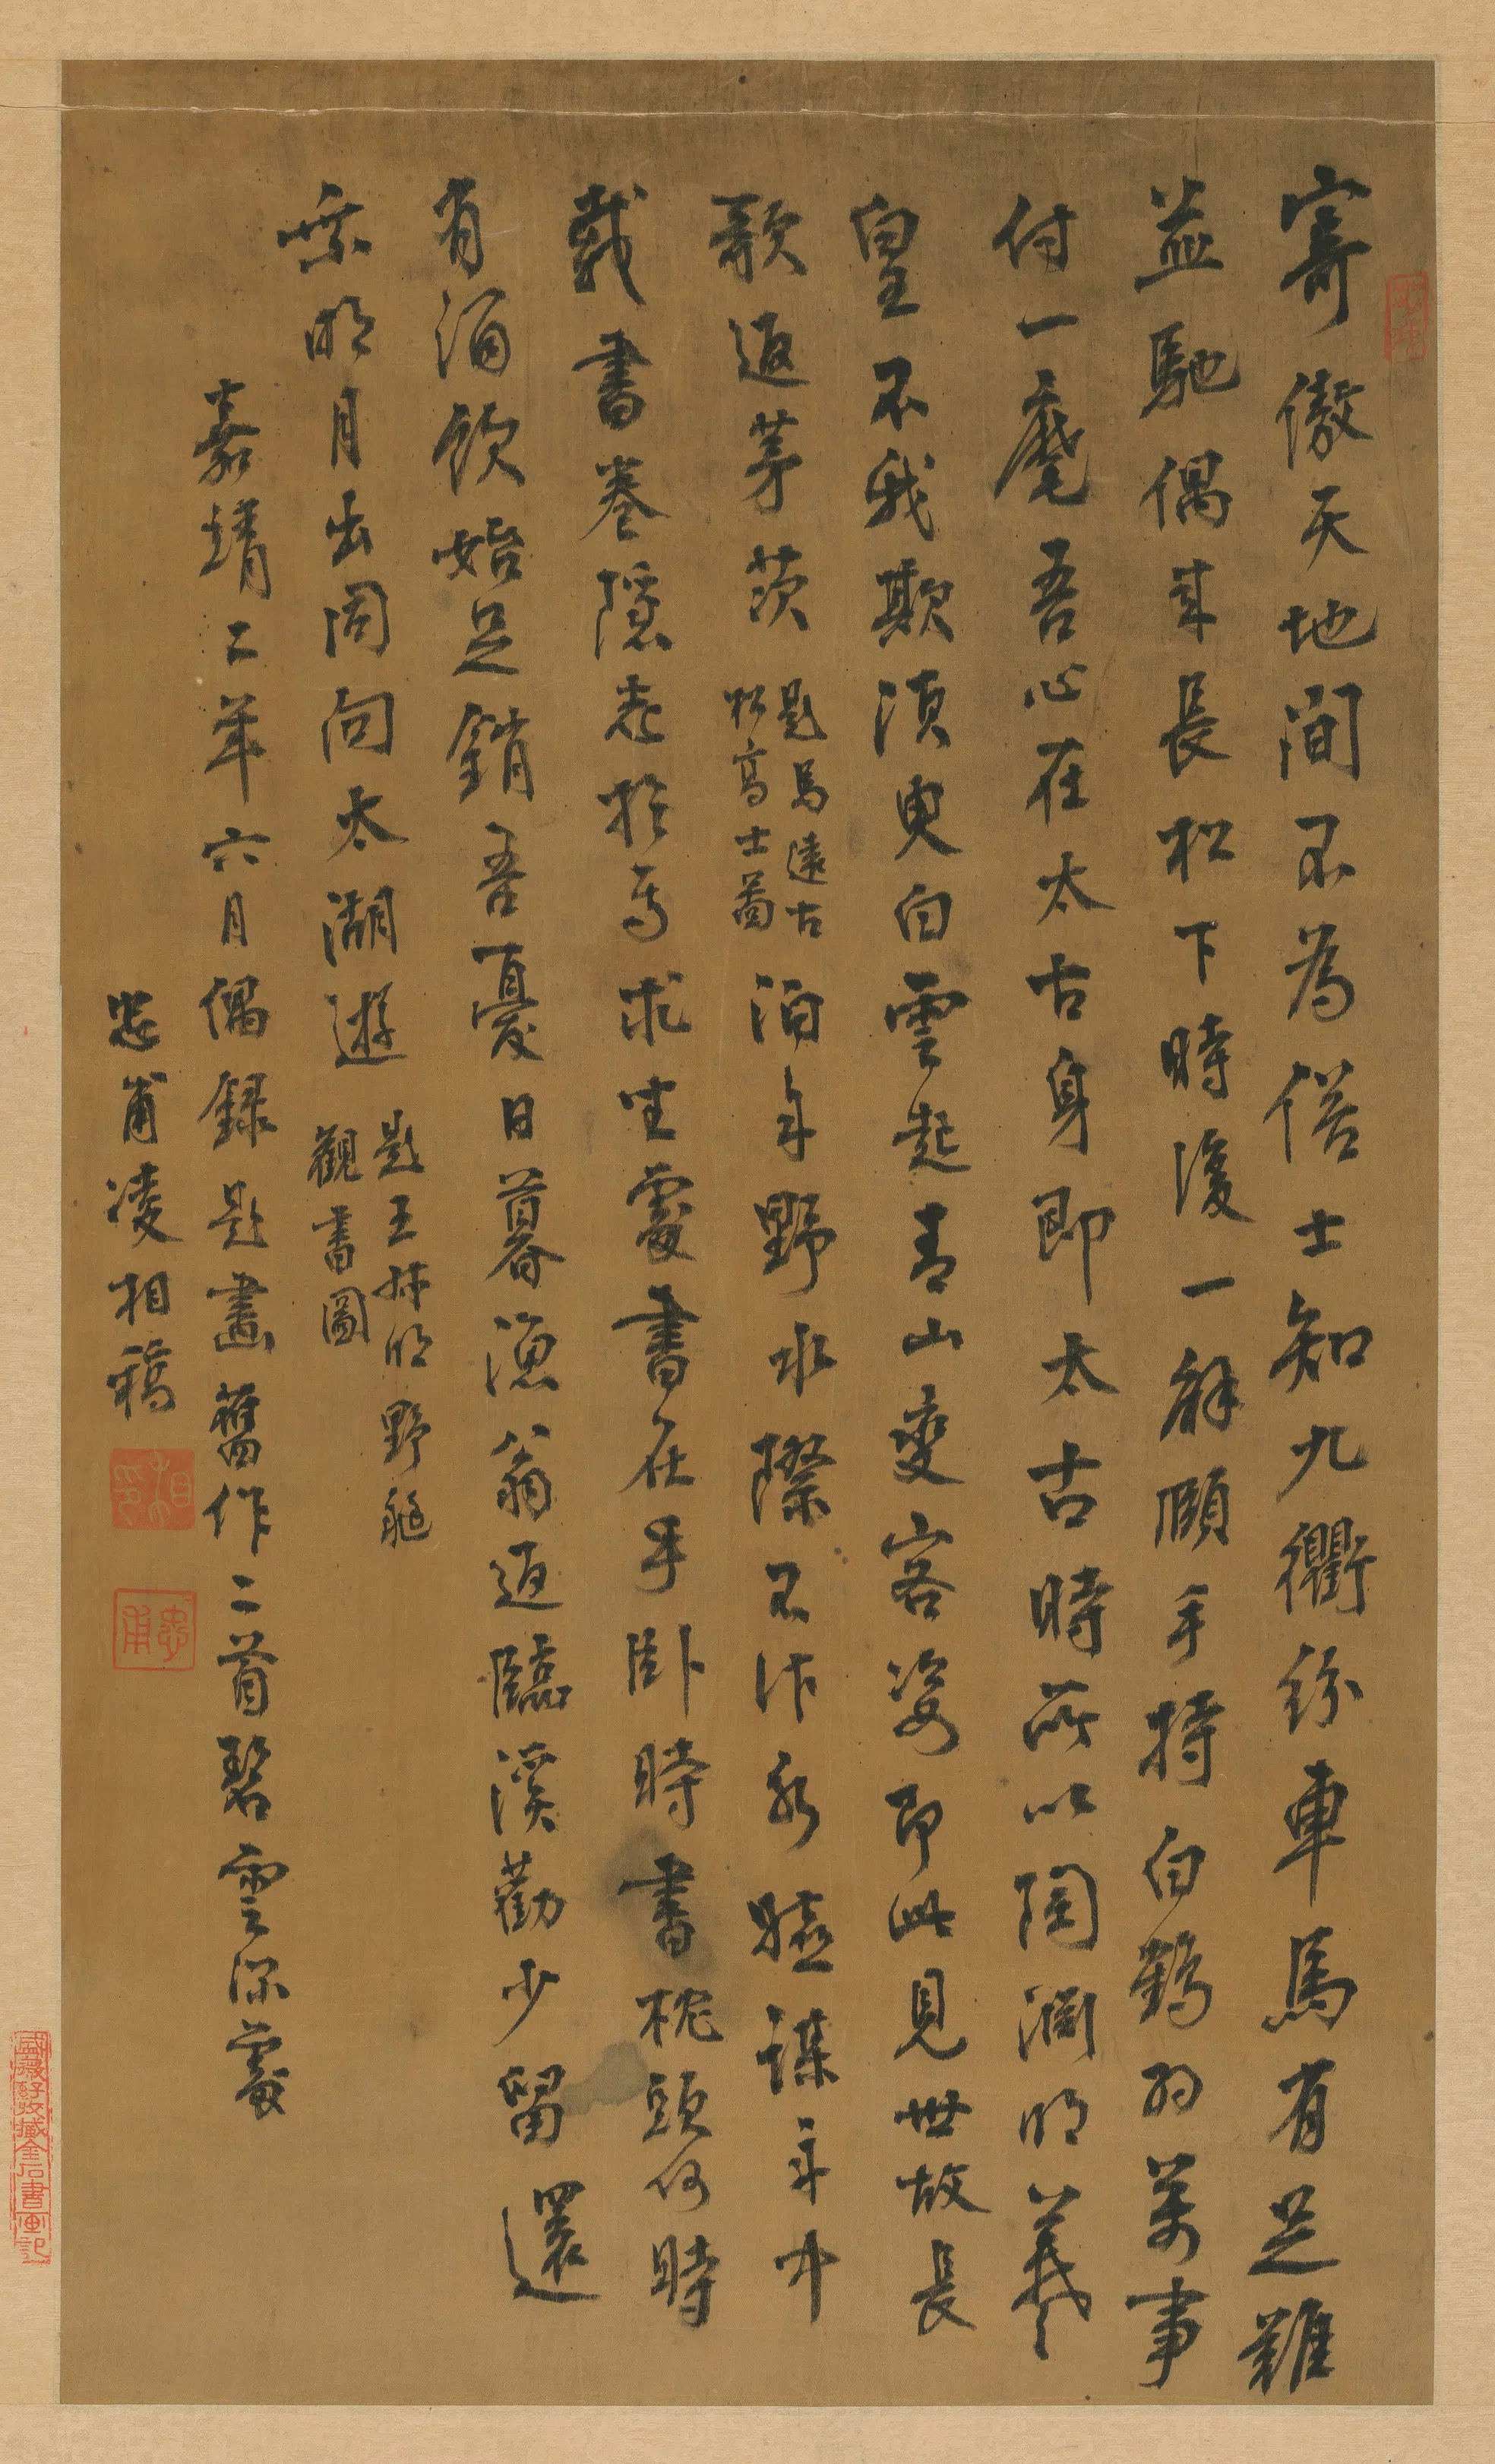 寄傲天地間不為俗士知九衢紛車馬有足難
益馳偶來長松下時復一解頤手持白鶴羽萬事
付一麾吾心在太古身即太古時所以陶淵明羲
皇不我欺須臾白雲起青山變容姿即此見世故長
歌返茅茨
題馬遠古
松高士圖
泊舟野水際不作利驅謀舟中
載書卷隱志於焉求坐處書在手臥時書枕頭何時
有酒飲始足銷吾憂日暮漁翁返臨溪勸少留還
乘明月出同向太湖遊
題王叔明野艇
觀書圖
嘉靖二年六月偶錄題畫舊作二首碧雲深處
忠甫凌相稿
相印
忠甫